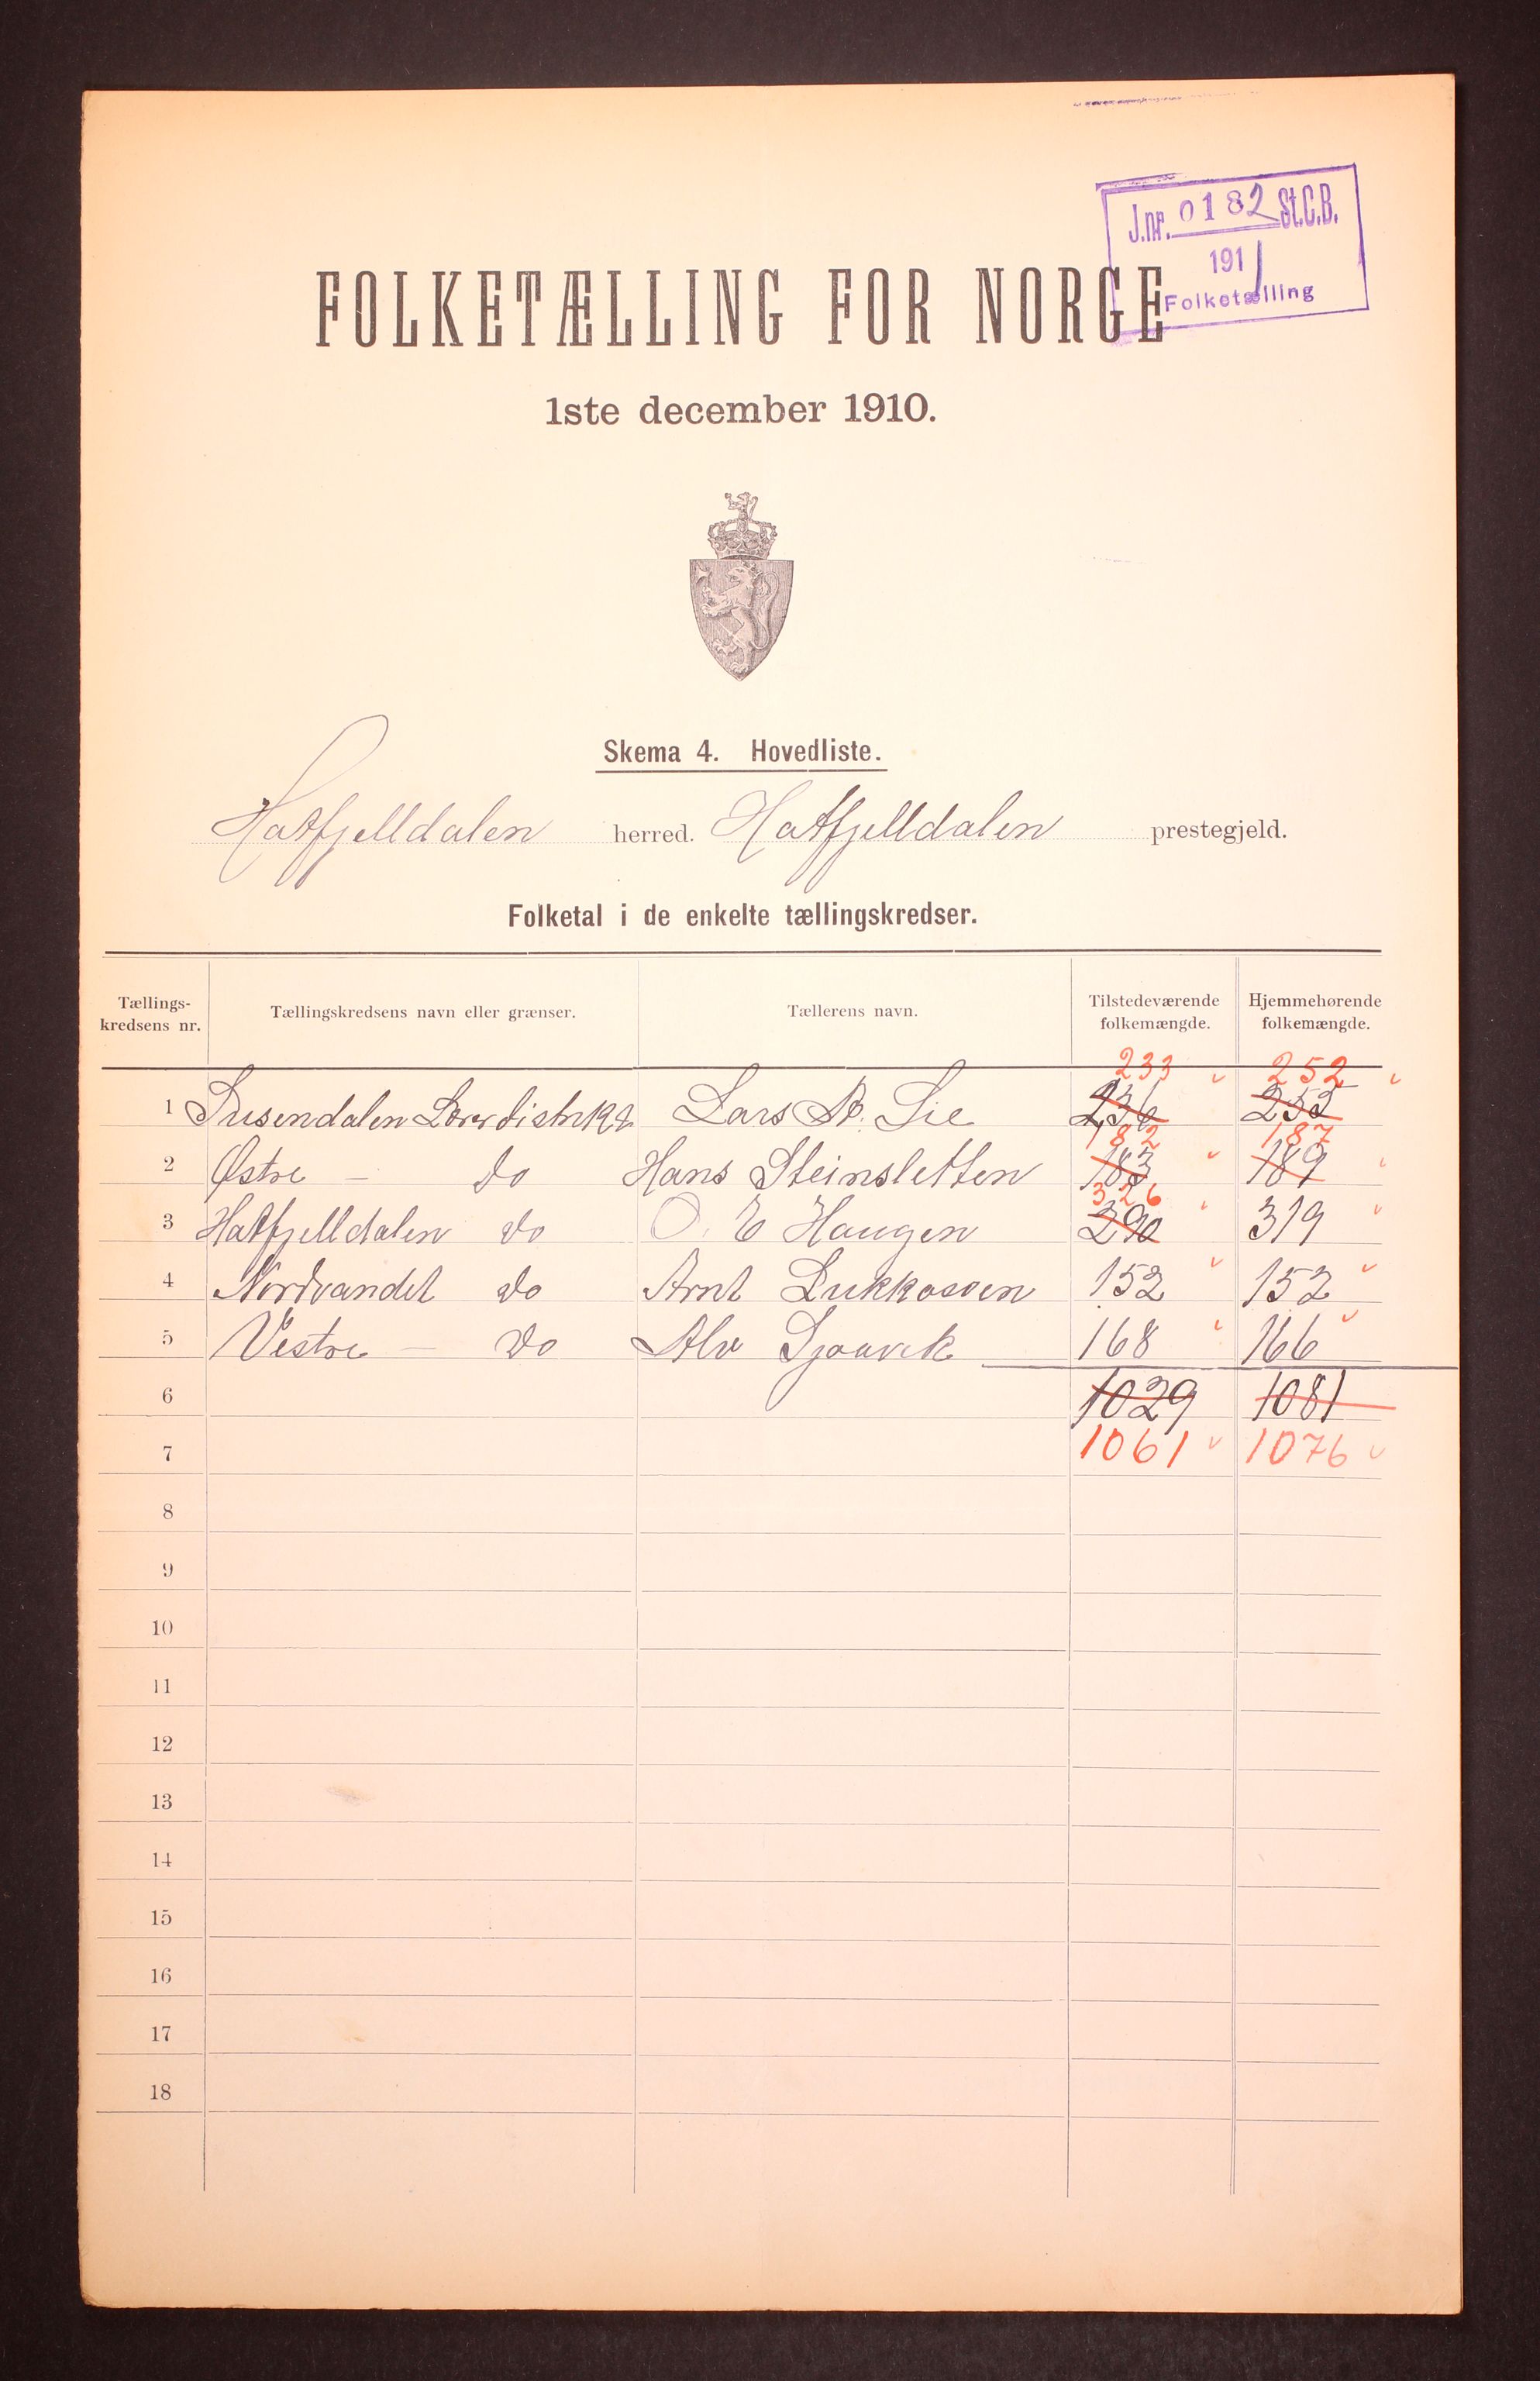 J.nr. 0182 St.C.B.
1911
Folketælling
FOLKETÆLLING FOR NORGE
1ste december 1910.
Skema 4. Hovedliste.
Hatfjelldalen herred. Hatfjelldalen prestegjeld.
Folketal i de enkelte tællingskredser.
Tællings-kredsens nr. Tællingskredsens navn eller grænser. Tællerens navn. Tilstedeværende folkemængde. Hjemmehørende folkemængde.
233 252
1 Susendalen Lars Lie 236
182 187
2 Østre - do Hans Steinsletten 183 189
326
3 Hatfjelldalen do O. E Haugen 290 319
4 Nordvandet do Arnt 152 152
5 Vestre - do Alv 168 166
6 1029 1081
7 1061 1076
8
9
10
11
12
13
14
15
16
17
18